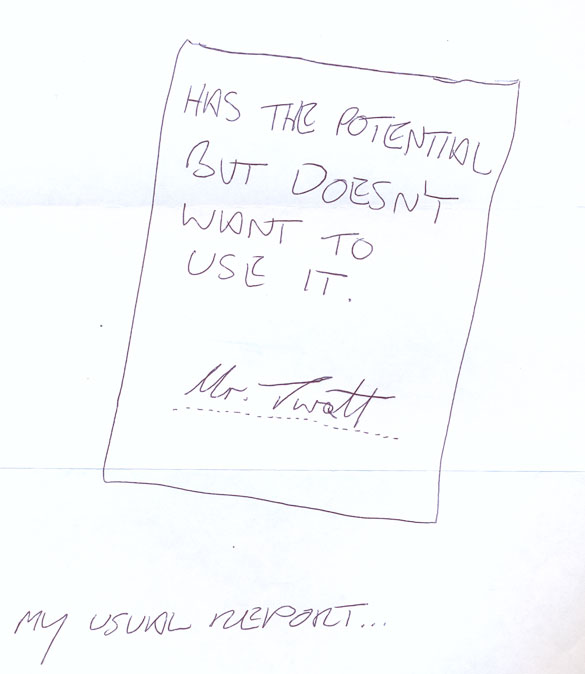 HAS THE POTENTIAL
BUT DOESN'T
WANT TO
USE IT.
Mr. Twatt
MY USUAL REPORT...